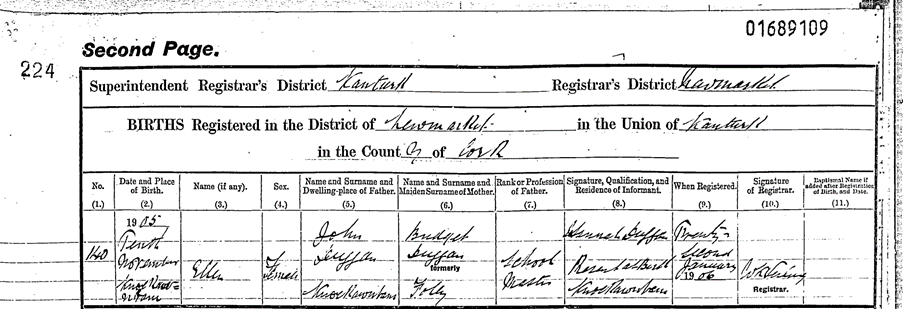 01689109
Second Page.
224
Superintendent Registrar's District Kanturk Registrar's District Newmarket
BIRTHS Registered in the District of Newmarket in the Union of Kanturk
in the County of Cork
No. Date and Place of Birth. Name (if any). Sex. Name and Surname and Dwelling-place of Father. Name and Surname and Maiden Surname of Mother. Rank or Profession of Father. Signature, Qualification, and Residence of Informant. When Registered. Signature of Registrar. Baptismal Name if added after Registration of Birth, and Date.
(1.) (2.) (3.) (4.) (5.) (6.) (7.) (8.) (9.) (10.) (11.)
1905 John Bridget Hannah Duggan Twenty-
140 Tenth Duggan Duggan School second
November Ellen Female formerly Master Present at Birth January
Knockaw- Knockawinbawn Foley Knockawinbawn 1906 Registrar.